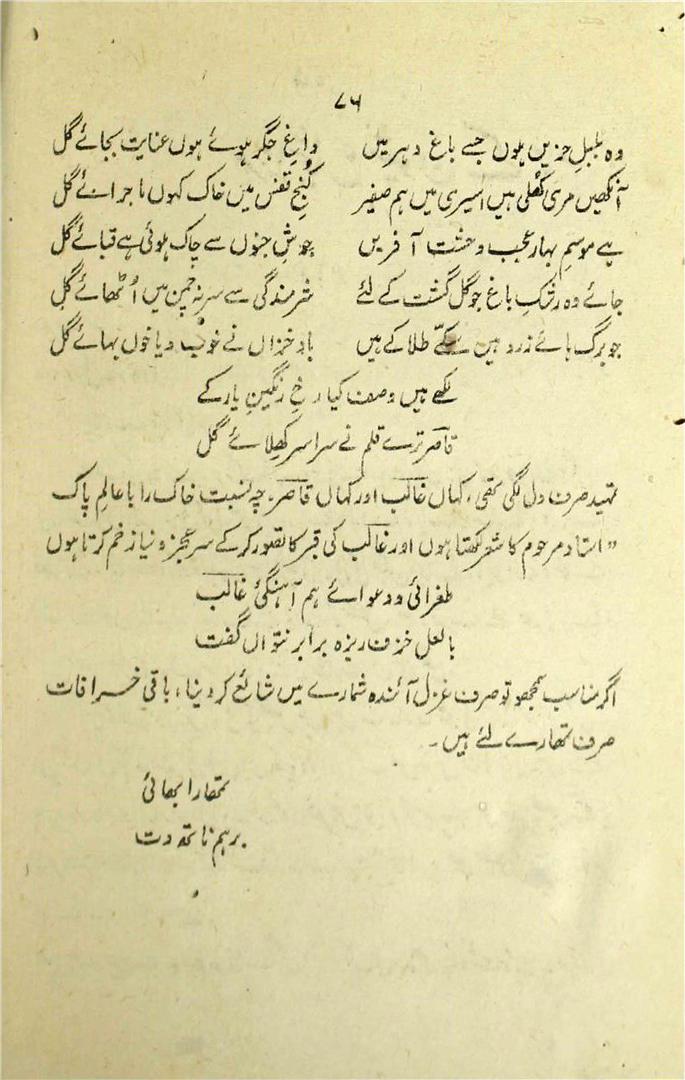 ۷۶
وہ بلبلِ حزیں ہوں جسے باغِ دہر میں داغِ جگر ہوئے ہوں عنایت بجائے گل
آنکھیں مری کھلی ہیں اسیری میں ہم صفیر کُنجِ قفس میں خاک کہوں ماجرائے گل
ہے موسمِ بہار عجب وحشت آفریں جوشِ جنوں سے چاک ہوئی ہے قبائے گل
جائے وہ رشکِ باغ جو گل گشت کے لئے شرمندگی سے سر نہ چمن میں اُٹھائے گل
جو برگ ہائے زرد ہیں سکّے طلا کے ہیں بادِ خزاں نے خوب دیا خوں بہائے گل
لکھے ہیں وصف کیا رخِ رنگینِ یار کے
قاصر ترے قلم نے سراسر کھلائے گل
تمہید صرف دل لگی تھی، کہاں غالب اور کہاں قاصر۔ چہ نسبت خاک را با عالمِ پاک
"استاد مرحوم کا شعر لکھتا ہوں اور غالب کی قبر کا تصور کر کے سرِ عجز و نیاز خم کرتا ہوں
طغرائی و دعوائے ہم آہنگیٔ غالب
بالعل خزف ریزہ برابر نتواں گفت
اگر مناسب سمجھو تو صرف غزل آئندہ شمارے میں شائع کر دینا، باقی خرافات
صرف تمھارے لئے ہیں۔
تمھارا بھائی
برہم ناتھ دت